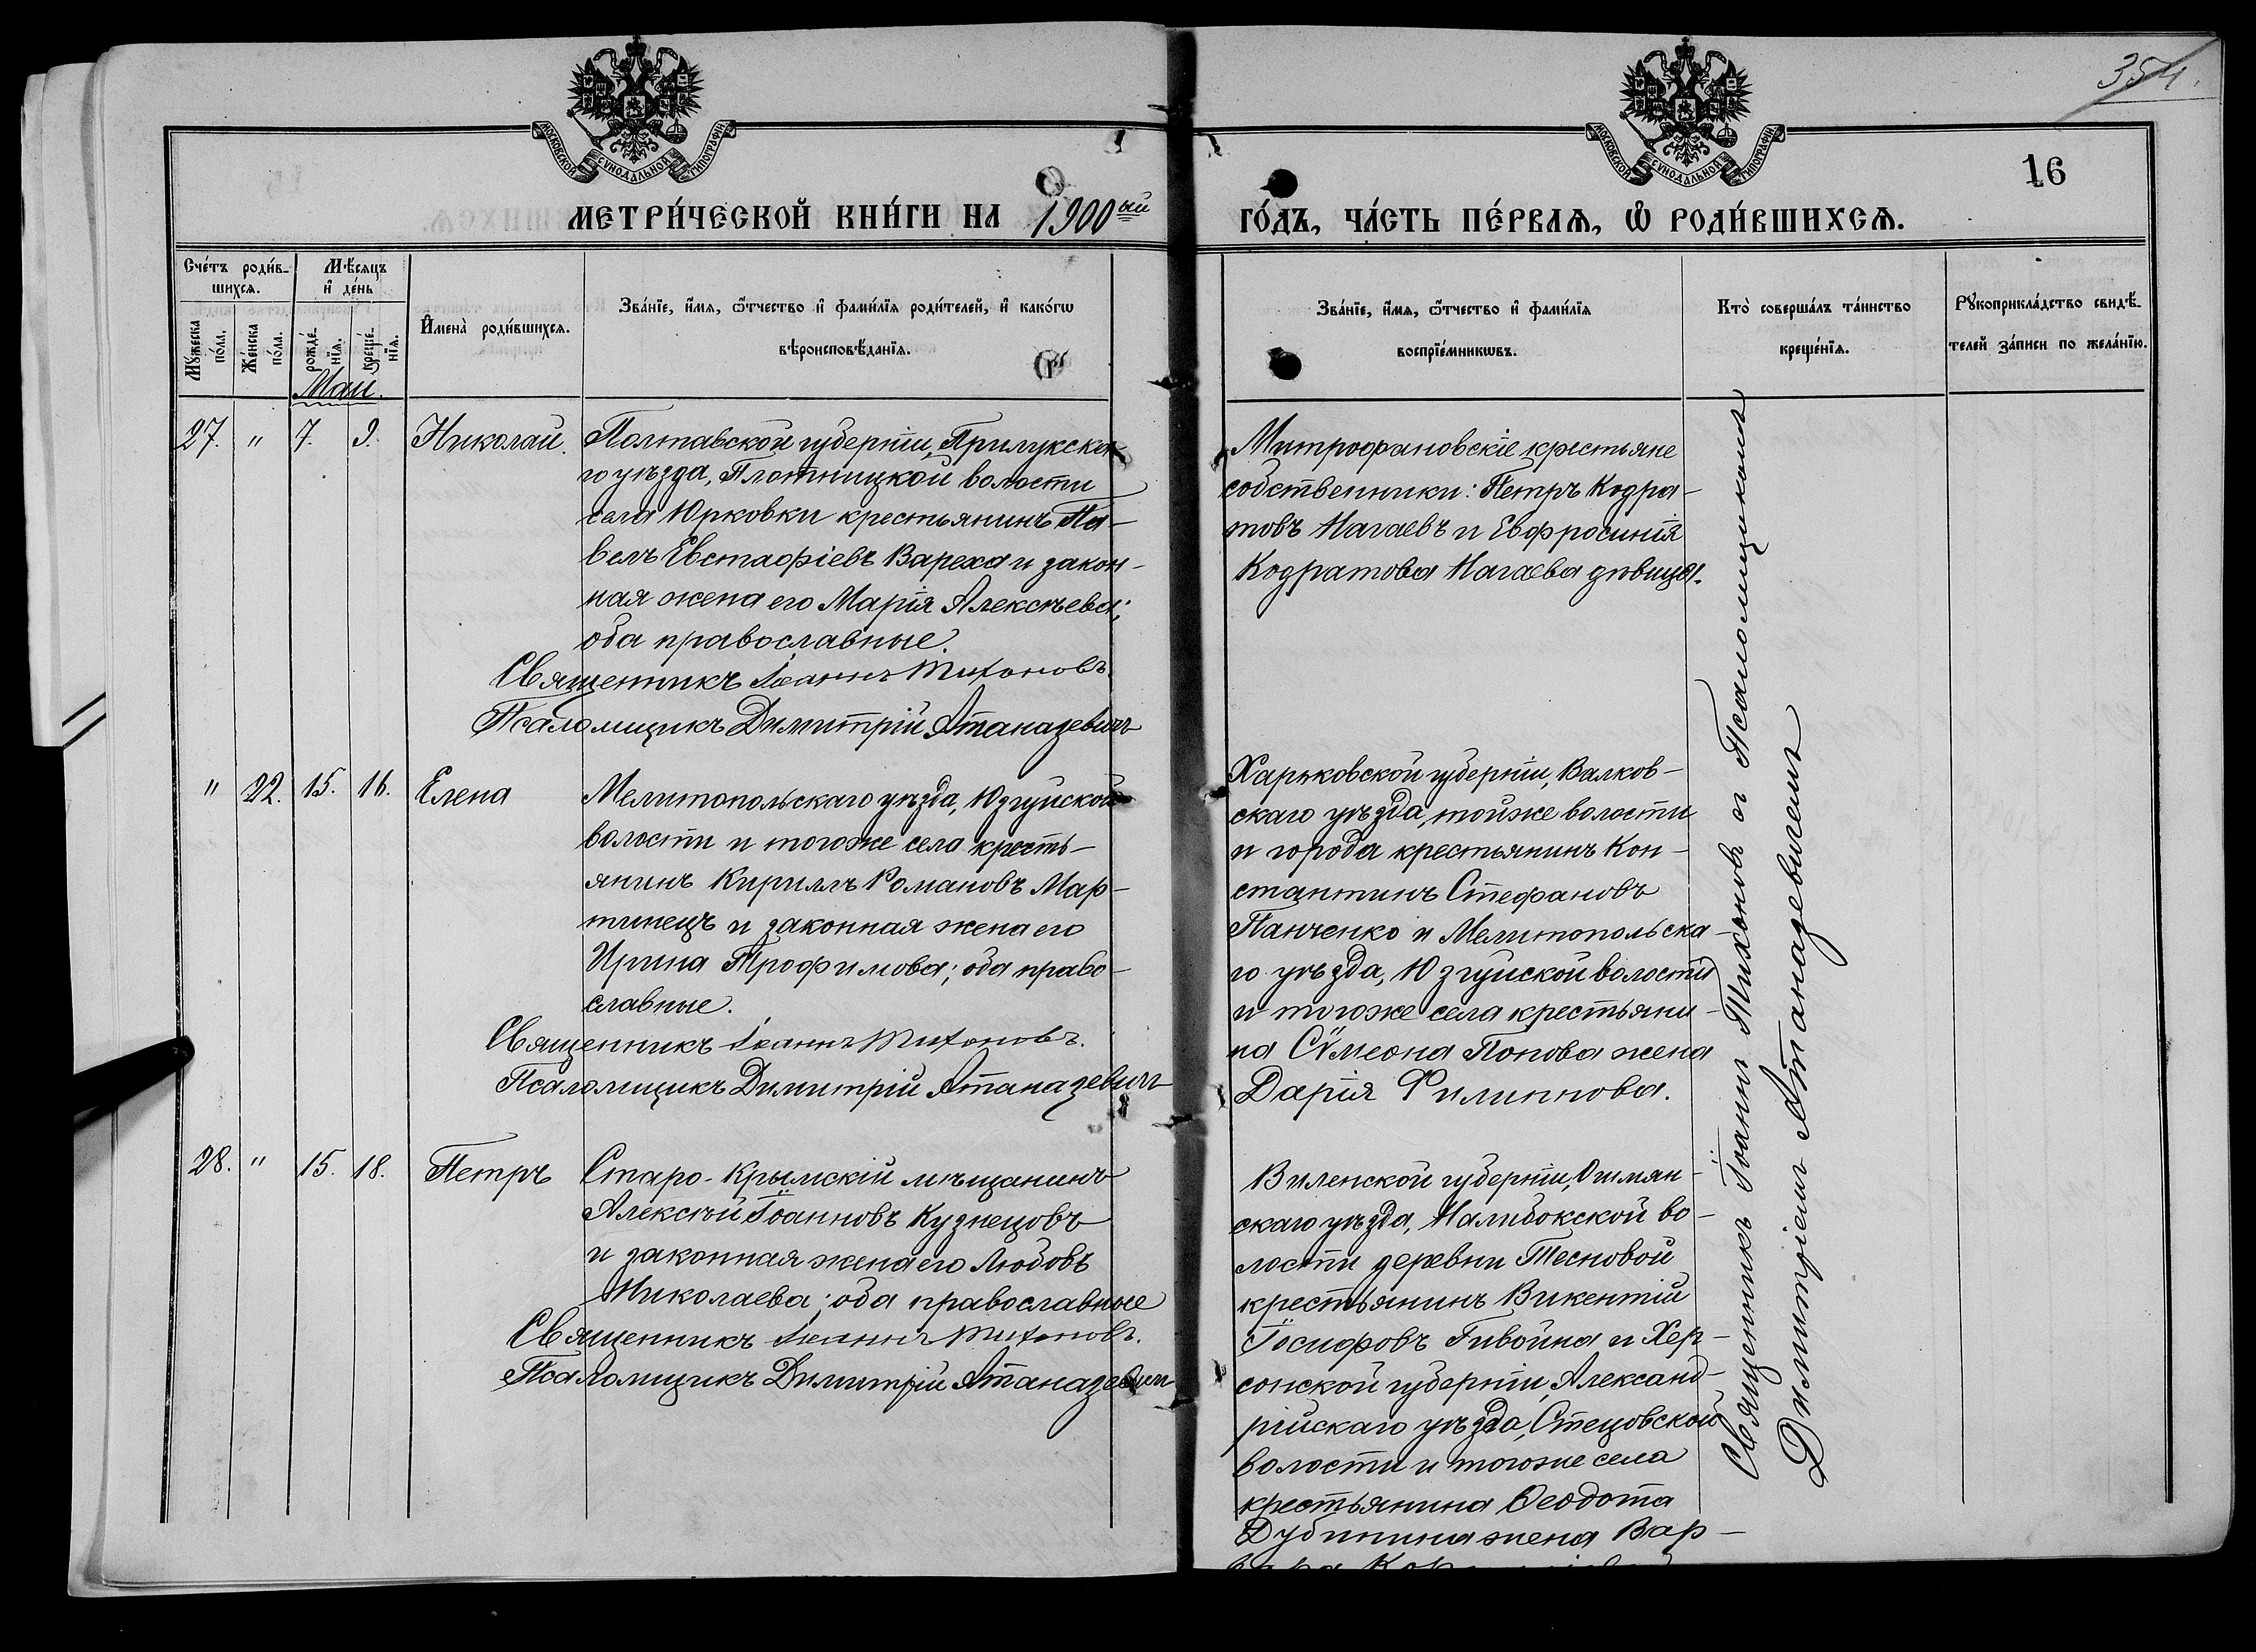 354.
МОСКОВСКОЙ СѴНОДАЛЬНОЙ ТИПОГРАФІИ
МОСКОВСКОЙ СѴНОДАЛЬНОЙ ТИПОГРАФІИ
16
МЕТРИ́ЧЕСКОЙ КНИ́ГИ НА 1900ый
ГО́ДЪ, ЧА́СТЬ ПЕ́РВАѦ, Ѽ РОДИ́ВШИХСѦ.
Сче́тъ роди́в-
шихсѧ.
Мꙋ́жеска по́ла.
Же́нска по́ла.
Мѣ́сѧцъ
и҆ де́нь
рожде́-
нїѧ.
креще́-
нїѧ.
И҆мена̀ роди́вшихсѧ.
Зва́нїе, и҆́мѧ, ѻ҆́тчество и҆ фами́лїѧ роди́телей, и҆ како́гѡ
вѣроисповѣ́данїѧ.
Зва́нїе, и҆́мѧ, ѻ҆́тчество и҆ фами́лїѧ
воспрїе́мникѡвъ.
Кто̀ соверша́лъ та́инство
креще́нїѧ.
Рꙋкоприкла́дство свидѣ́-
телей за́писи по жела́нїю.
Маи.
27. " 7. 9. Николай.
Полтавской губерніи, Прилукска-
го уѣзда, Плотницкой волости
села Юрковки крестьянинъ Па-
велъ Евстафіевъ Вареха и закон-
ная жена его Марія Алексѣева;
оба православные.
Священникъ Іоаннъ Тихоновъ.
Псаломщикъ Димитрій Атаназевичъ
Митрофановскіе крестьяне
собственники: Петръ Кодра-
товъ Нагаевъ и Евфросинія
Кодратова Нагаева дѣвица.
" 22. 15. 16. Елена
Мелитопольскаго уѣзда, Юзгуйской
волости и тогоже села кресть-
янинъ Кириллъ Романовъ Мар-
тинецъ и законная жена его
Ирина Трофимова; оба право-
славные.
Священникъ Іоаннъ Тихоновъ.
Псаломщикъ Димитрій Атаназевичъ
Харьковской губерніи, Валков-
скаго уѣзда, тойже волости
и города крестьянинъ Кон-
стантинъ Стефановъ
Панченко и Мелитопольска-
го уѣзда, Юзгуйской волости
и тогоже села крестьяни-
на Сѵмеона Попова жена
Дарія Филиппова.
28. " 15. 18. Петръ
Старо-Крымскій мѣщанинъ
Алексѣй Іоанновъ Кузнецовъ
и законная жена его Любовь
Николаева; оба православные
Священникъ Іоаннъ Тихоновъ.
Псаломщикъ Димитрій Атаназевичъ
Виленской губерніи, Ошмян-
скаго уѣзда, Налибокской во-
лости деревни Тесновой
крестьянинъ Викентій
Іосифовъ Гивойна и Хер-
сонской губерніи, Александ-
рійскаго уѣзда, Стецовской
волости и тогоже села
крестьянина Ѳеодота
Дубинина жена Вар-
Священникъ Іоаннъ Тихоновъ съ Псаломщикомъ
Димитріемъ Атаназевичемъ